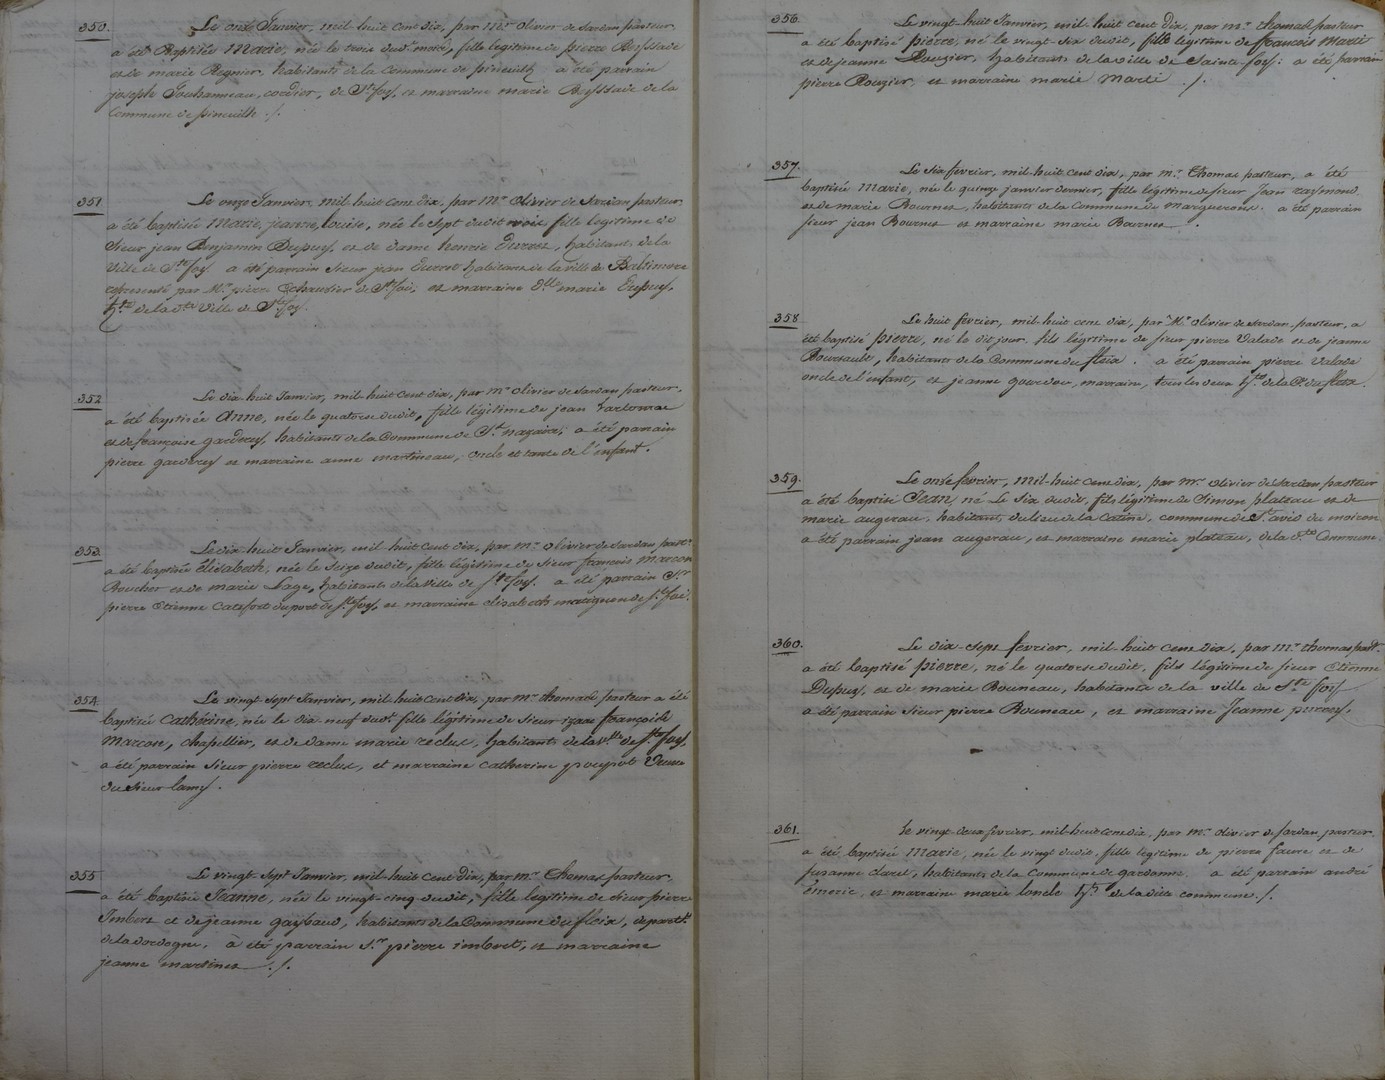 350. Le onze Janvier, mil huit cent dix, par mr. Olivier de Sardan pasteur,
a été Baptisée Marie, née le trois du dt. mois, fille légitime de pierre Beyssade
et de marie Regnier, habitants de la Commune de pineuilh, a été parrain
joseph Jouhanneau, cordier, de Ste. foy, et marraine marie Beyssade de la
Commune de pineuilh ./.
351 Le onze Janvier, mil huit cent dix, par Mr. Olivier de Sardan pasteur
a été baptisée Marie, jeanne, louise, née le Sept dudit mois, fille légitime de
Sieur jean Benjamin Dupuy, et de dame henrie , habitants de la
Ville de Ste. foy a été parrain sieur jean habitant de la ville de Baltimore
représenté par Mr. pierre de Ste. foi, et marraine dlle. marie Dupuy,
hte. de la dte. Ville de Ste. foy.
352 Le dix huit Janvier, mil huit cent dix, par mr. Olivier de Sardan pasteur,
a été baptisée Anne, née le quatorze dudit, fille légitime de jean
et de françoise garderey, habitants de la Commune de St. nazaire, a été parrain
pierre garderey et marraine anne martineau, oncle et tante de l'enfant.
353. Le dix huit Janvier, mil huit cent dix, par mr. Olivier de Sardan pastr.
a été baptisée Elisabeth, née le Seize dudit, fille légitime de Sieur françois Marcon
Boucher et de marie Lage, habitants de la Ville de Ste. foy. a été parrain Sr.
pierre Etienne Catefort du port de Ste. foy, et marraine elisabeth matignon de Ste. foi.
354 Le vingt Sept Janvier, mil huit cent dix, par mr. thomas pasteur a été
baptisée Catherine, née le dix neuf dudt. fille légitime de Sieur izaac françois
Marcon, chapellier, et de dame marie reclus, habitants de la vlle de Ste. foy.
a été parrain sieur pierre reclus, et marraine catherine poupot Veuve
du Sieur lamy.
355 Le vingt Sept Janvier, mil huit cent dix, par mr. Thomas pasteur,
a été baptisée Jeanne, née le vingt-cinq dudit, fille légitime de Sieur pierre
Imbert et de jeanne gaybaud, habitants de la Commune du fleix, départt.
de la dordogne. a été parrain Sr. pierre imbert, et marraine
jeanne martinet ./.
356. Le vingt huit Janvier, mil huit cent dix, par mr. thomas pasteur
a été baptisé pierre, né le vingt-six dudit, fils légitime de francois Marti
et de jeanne Rouzier, habitants de la ville de Sainte-foy: a été parrain
pierre Rouzier, et marraine marie Marti ./.
357. Le Six fevrier, mil-huit cent dix, par mr. Thomas pasteur, a été
baptisée Marie, née le quinze janvier dernier, fille légitime de Sieur Jean raymond
et de marie Bournet, habitants de la Commune de Margueron. a été parrain
sieur jean Bournet et marraine marie Bournet .
358 Le huit fevrier, mil-huit cent dix, par Mr. Olivier de Sardan pasteur, a
été baptisé pierre, né le dit jour, fils légitime de Sieur pierre Valade et de jeanne
Boursault, habitants de la Commune du fleix. a été parrain pierre Valade
oncle de l'enfant, et jeanne gourdou, marraine, tous les deux hts. de la Ce. du fleix.
359. Le onze fevrier, Mil-huit cent dix, par mr. Olivier de Sardan pasteur
a été baptisé Jean né Le Six dudit, fils légitime de Simon plateau et de
marie augereau, habitants du lieu de la Catine, commune de St. avid du moiron
a été parrain jean augereau, et marraine marie plateau, de la dte. Commune.
360. Le dix-sept fevrier, mil-huit cent dix, par mr. thomas past.
a été baptisé pierre, né le quatorze dudit, fils légitime de sieur Etienne
Dupuy, et de marie Bouneau, habitants de la ville de Ste. foy
a été parrain sieur pierre Bouneau, et marraine Jeanne
361. le vingt-deux fevrier, mil-huit cent dix, par mr. olivier de Sardan pasteur.
a été baptisée Marie, née le vingt dudit, fille légitime de pierre faure et de
suzanne claret, habitants de la Commune de gardonne. a été parrain andré
Emeric, et marraine marie loncle hts. de la dite commune ./.